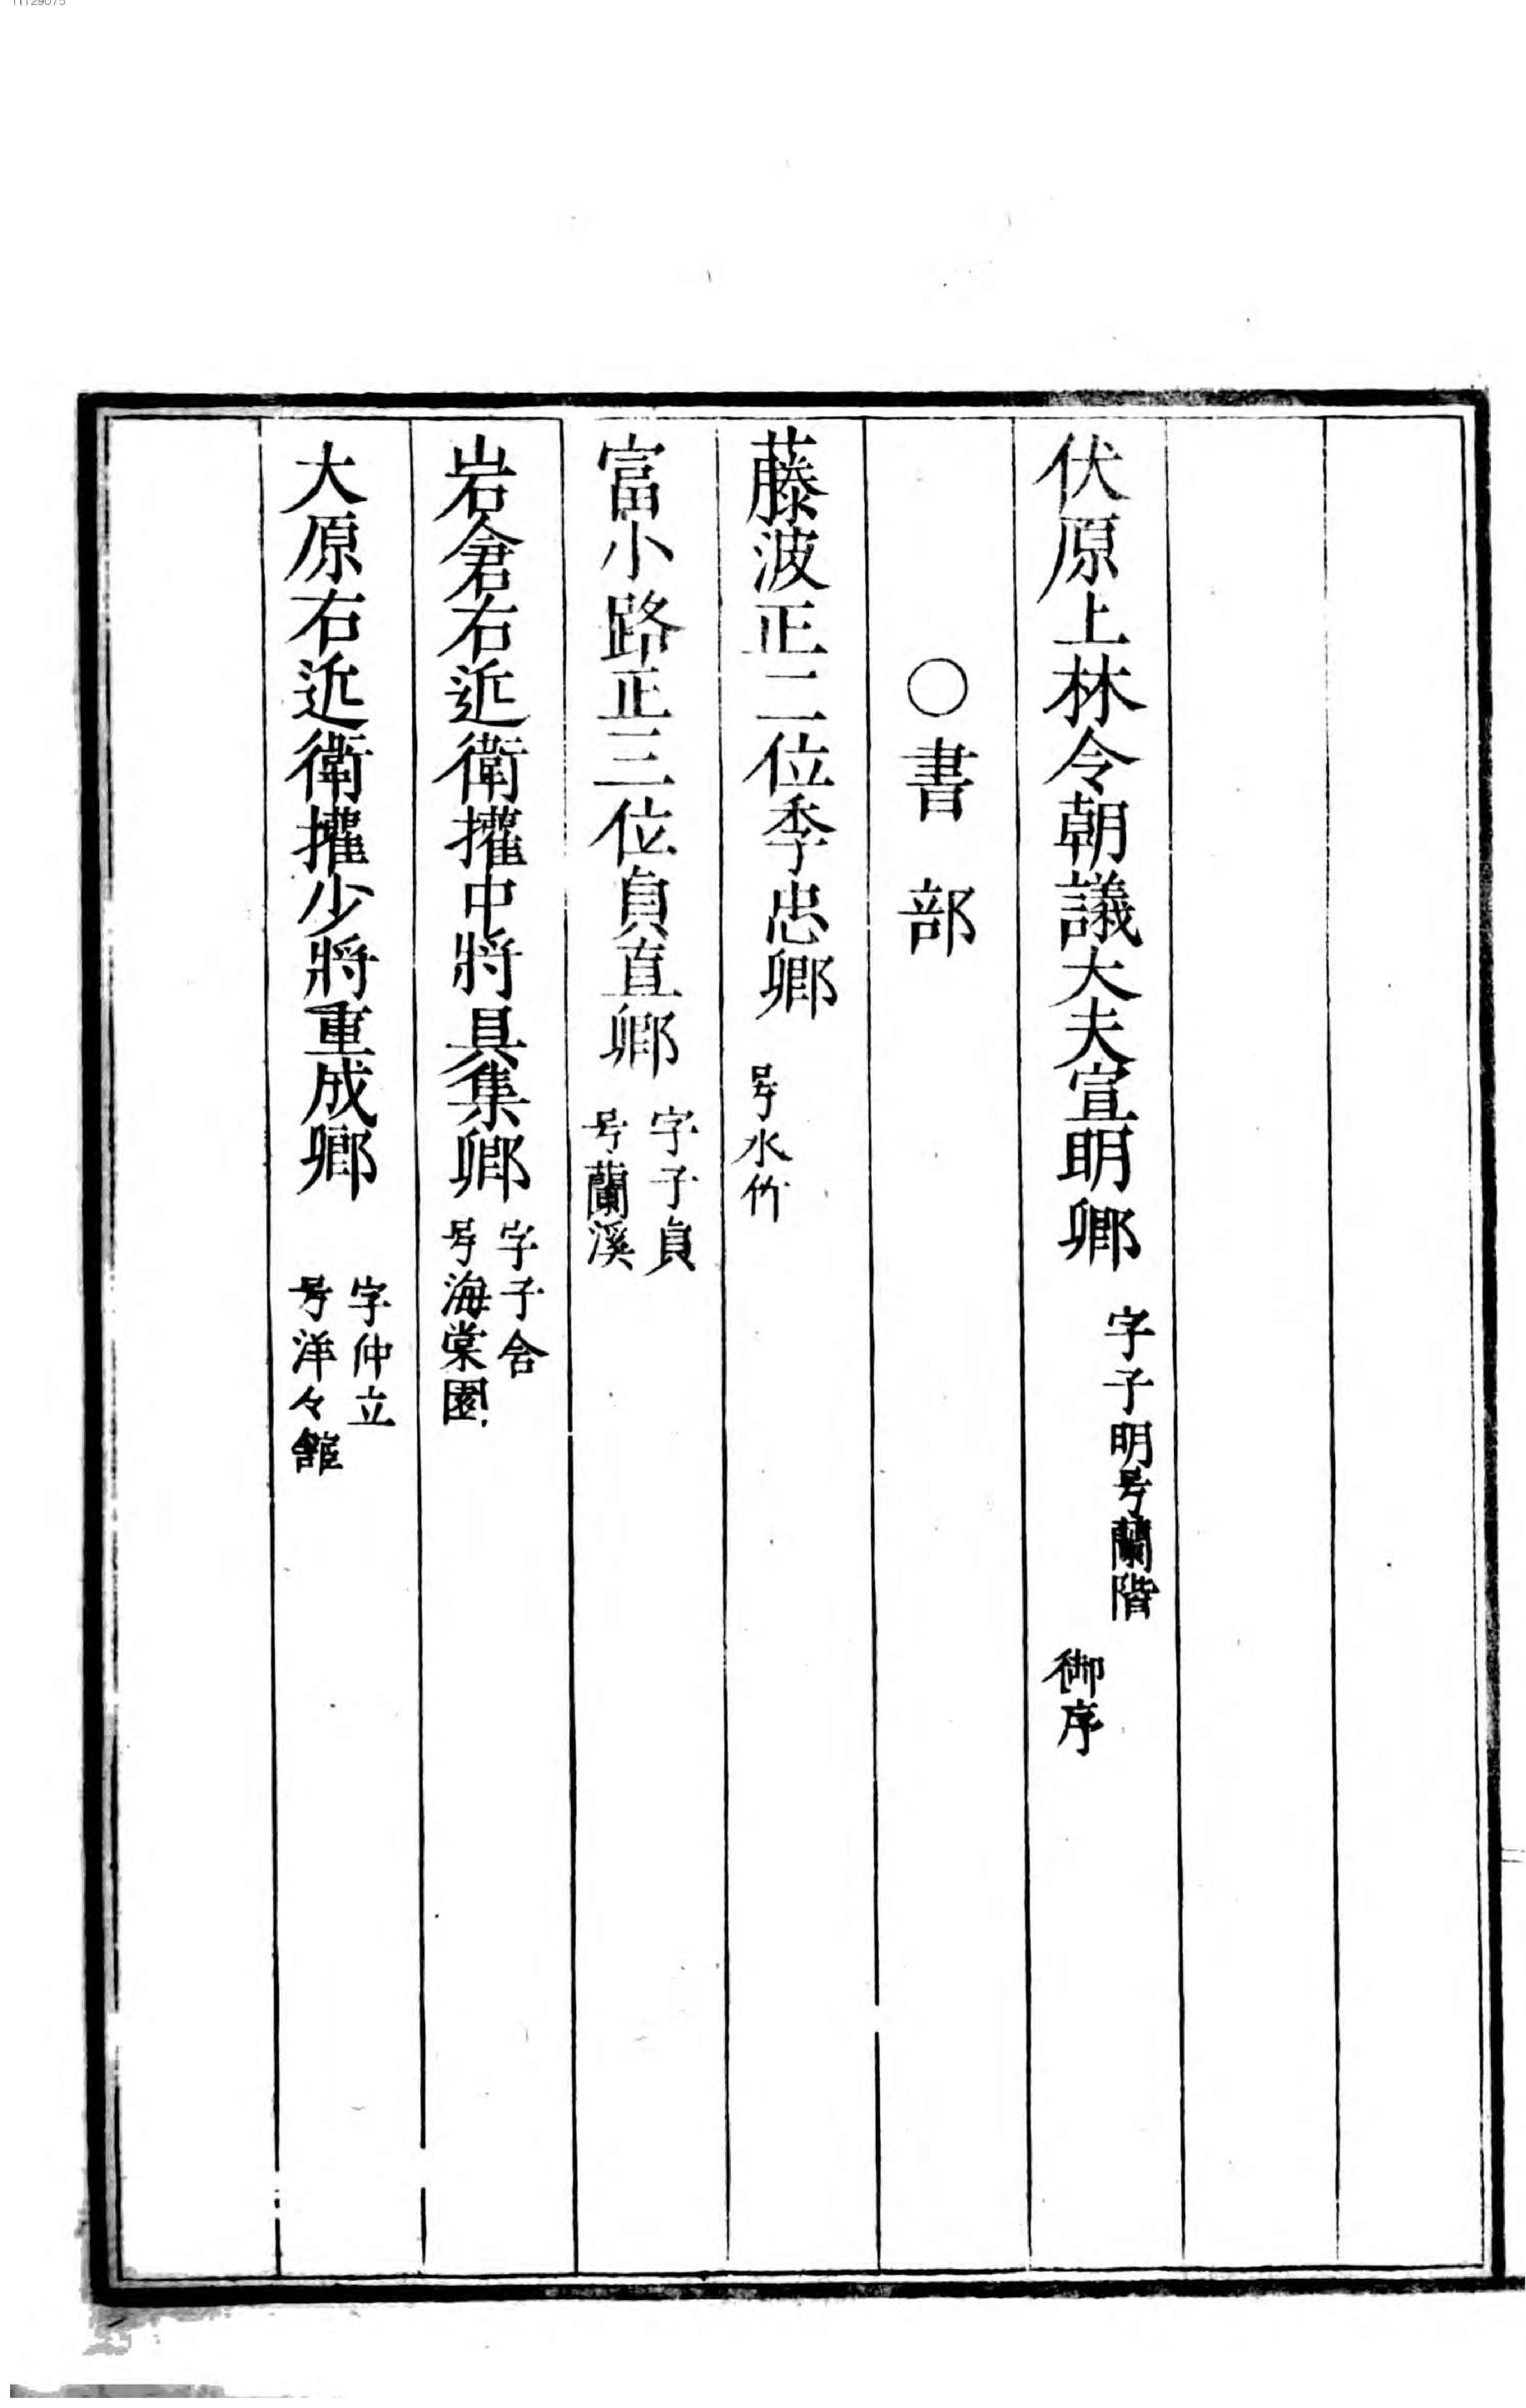 11129075
伏原上林令朝議大夫宣明卿 字子明号蘭階 御序
〇書部
藤波正二位季忠卿 号水竹
富小路正三位貞直卿 字子貞
号蘭溪
岩倉右近衛權中將具集卿 字子合
号海棠園
大原右近衛權少將重成卿 字仲立
号洋々館